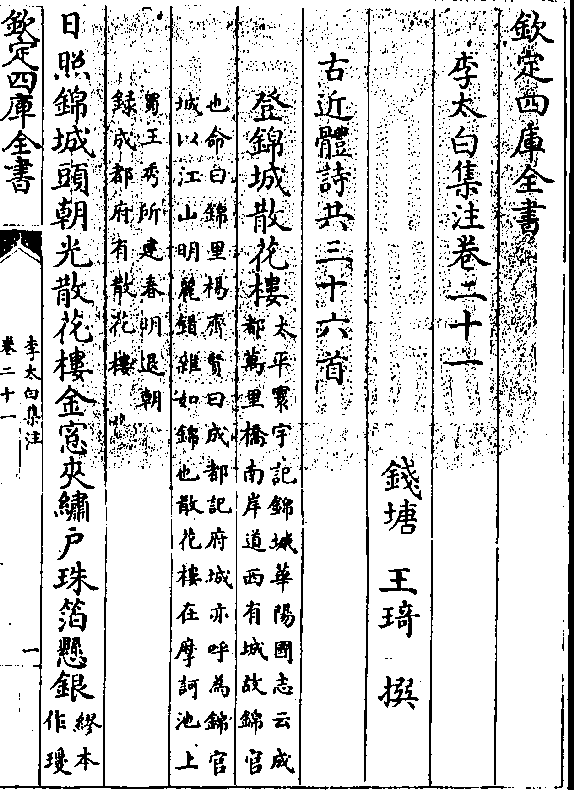 欽定四庫全書
李太白集注卷二十一
錢塘 王琦 撰
古近體詩共三十六首
登錦城散花樓
太平寰宇記錦城華陽國志云成
都萬里橋南岸道西有城故錦官
也命曰錦里楊齊賢曰成都記府城亦呼為錦官
城以江山明麗錯雜如錦也散花樓在摩訶池上
蜀王秀所建春明退朝
録成都府有散花樓
日照錦城頭朝光散花樓金窓夾繡戶珠箔懸銀
繆本
作瓊
欽定四庫全書
李太白集注
卷二十一
一